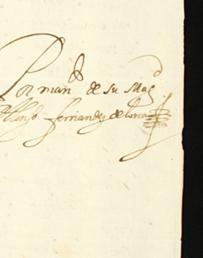 Por man^do de su Mag^d
Alonso fernandez de lorca